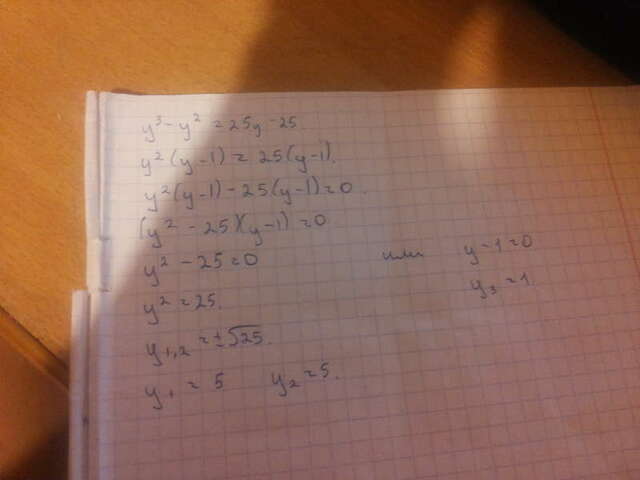 y³ - y² = 25y - 25
y²(y-1) = 25(y-1)
y²(y-1) - 25(y-1) = 0
(y² - 25)(y-1) = 0
y² - 25 = 0 или y - 1 = 0
y² = 25. y₃ = 1
y₁,₂ = ±√25.
y₁ = 5 y₂ = 5.